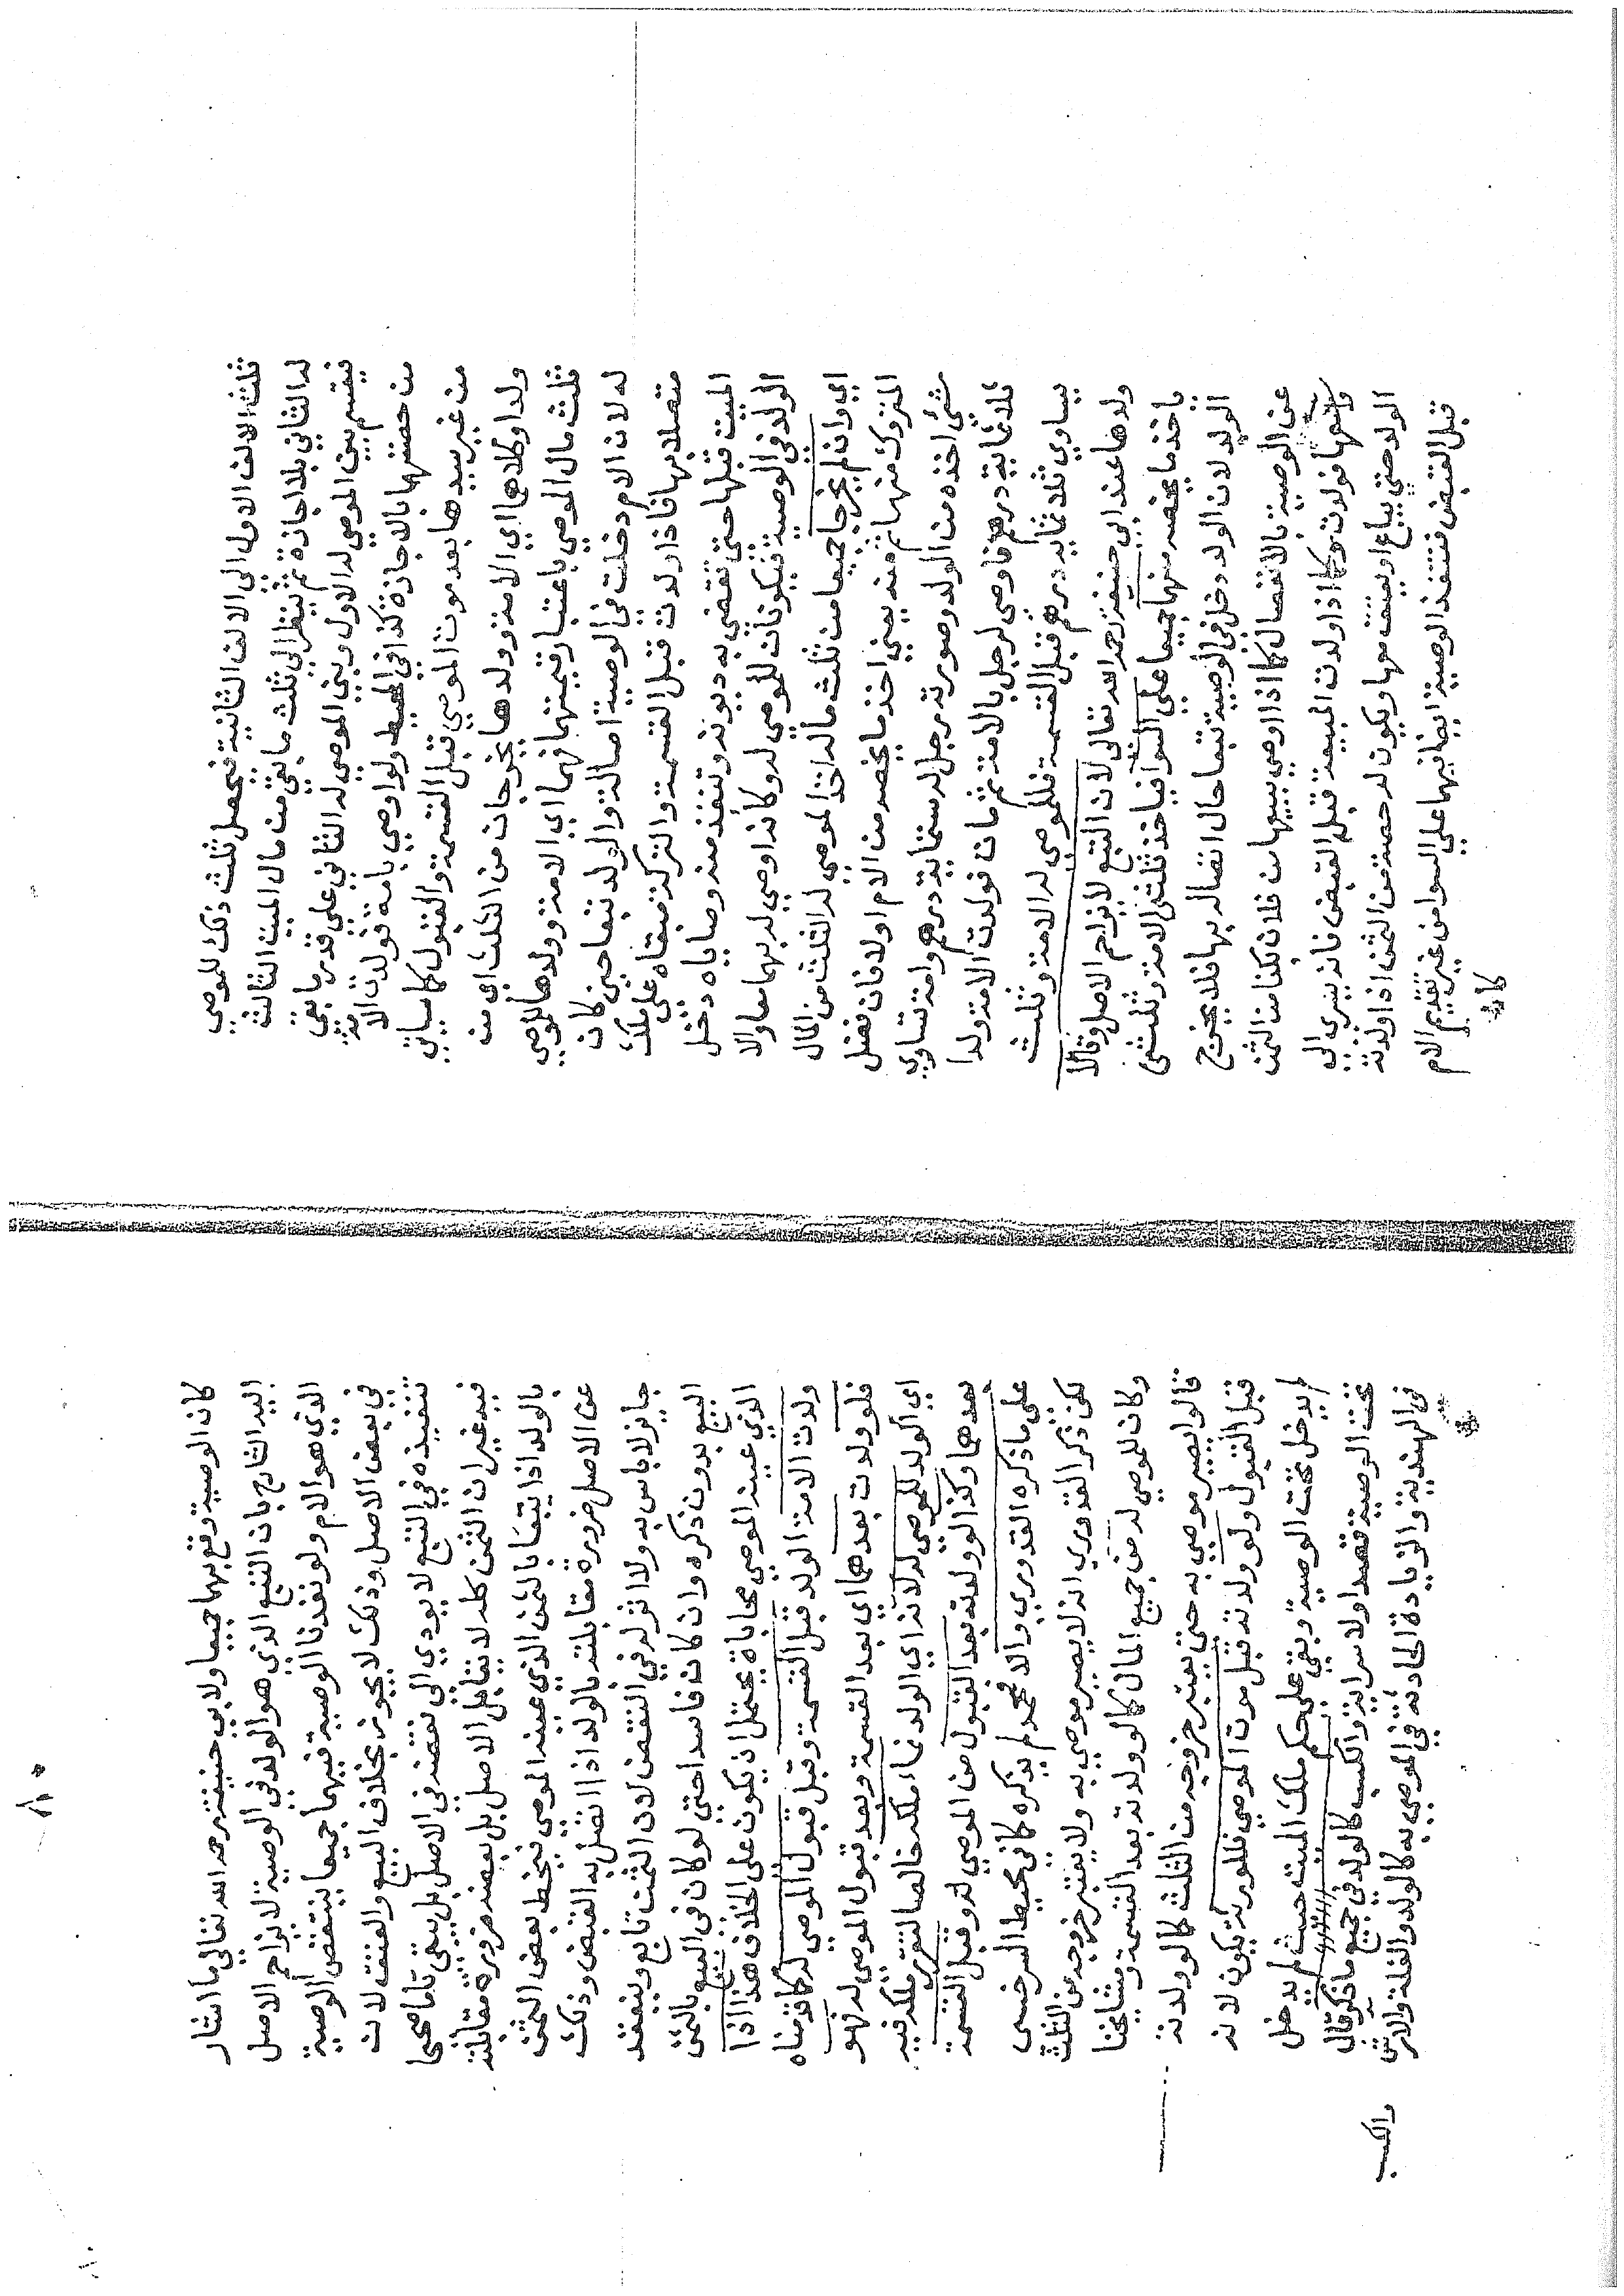 ثلث الالف الاول الى الالف الثانية فيجعل ثلث ذلك للموصي
له الثاني بلا اجازة ثم ينظر الى ثلث ما بقي من مال الميت الثالثة
فيقسم بين الموصي له الاول وبين الموصي له الثاني على قدر ما بقي
من حصتها بالاجازة كذا في المحيط ولو اوصي بامة فولدت الامة
من غير سيدها بعد موت الموصي قبل القسمة والقبول كما سياتي
ولدا وكلاهما اي الامة وولدها يخرجان من الثلث اي من
ثلث مال الموصي باعتبار قيمتهما فهما اي الامة وولدها للموصي
له لان الام دخلت في الوصية اصالة والولد تبعا حين كان
متصلا بها فاذا ولدت قبل القسمة والتركة مبقاه على ملك
الميت قبلها حتى تقضي به ديونه وتنفذ منه وصاياه دخل
الولد في الوصية فيكونان للموصي له وكانه اوصي له بهما معا والا
اي وان لم يخرجا جميعا من ثلث ماله اخذ الموصي له الثلث من المال
المتروك منها ثم منه يعني اخذ ما يخصه من الام اولا فان فضل
شئ اخذه من الولد وصورته رجل له ستماية درهم وامة تساوي
ثلاثماية درهم فاوصى لرجل بالامة ثم مات فولدت الامة ولدا
يساوي ثلاثماية درهم قبل القسمة فللموصى له الامة وثلث
ولدها عند ابي حنيفة رحمه الله تعالى لان التبع لا يزاحم الاصل وقالا
ياخذ ما يخصه منهما جميعا على السوا فياخذ ثلثي الامة وثلثي
الولد لان الولد دخل في الوصية تبعا حال اتصاله بها فلا يخرج
عن الوصية بالانفصال كما اذا اوصي ببيعها من فلان بكذا من الثمن
فولدت وكما اذا ولدت المبيعة قبل القبض فانه يسري الى
الولد حتى يباع او يعتق معها ويكون له حصة من الثمن اذا ولدته
قبل القبض فتنفذ الوصية ايضا فيهما على السوا من غير تقديم الام
كانه
كان الوصية وقع بهما جميعا ولابي حنيفة رحمه الله تعالى ما اشار
اليه الشارح بان التبع الذي هو الولد في الوصية لا يزاحم الاصل
الذي هو الام ولو نفذنا الوصية فيهما جميعا ينتقض الوصية
في بعض الاصل وذلك لا يجوز بخلاف البيع والعتق لان
تنفيذه في التبع لا يودي الى نقضه في الاصل بل يبقى تاما صحيحا
فيه غير ان الثمن كله لا يقابل الاصل بل بعضه ضرورة مقابلته
بالولد اذا بيعا بالثمن الذي عينه الموصي فيحط بعض الثمن
عن الاصل ضرورة مقابلته بالولد اذا اتصل به القبض وذلك
جايز لا باس به ولا اثر له في النقض لان الثمن تابع وينعقد
البيع بدون ذكره وان كان فاسدا حتى لو كان في البيع بالثمن
الذي عينه الموصي محاباة يحتمل ان يكون على الخلاف هذا اذا
ولدت الامة الولد قبل القسمة وقبل قبول الموصي له كما قدمناه
فلو ولدت بعدهما اي بعد القسمة وبعد قبول الموصي له فهو
اي الولد للموصي له لانه اي الولد نماء ملكه خالصا لتقرر ملكه فيه
بعدهما وكذا لو ولدته بعد القبول من الموصي له وقبل القسمة
على ما ذكره القدوري والا فمحمد لم يذكره كما في محيط السرخسي
لكن ذكر القدوري انه لا يصير موصي به ولا يعتبر خروجه من الثلث
وكان للموصي له من جميع المال كما لو ولدته بعد القسمة ومشايخنا
قالوا يصير موصي به حتى يعتبر خروجه من الثلث كما لو ولدته
قبل القبول ولو ولدته قبل موت الموصي فللورثة يكون لانه
لم يدخل تحت الوصية وبقي على حكم ملك الميت حيث لم يدخل
تحت الوصية قصدا ولا سراية والكسب كالولد في جميع ما ذكر قال
في الهندية والزيادة الحادثة في الموصي به كالولد والغلة والارش
والكسب